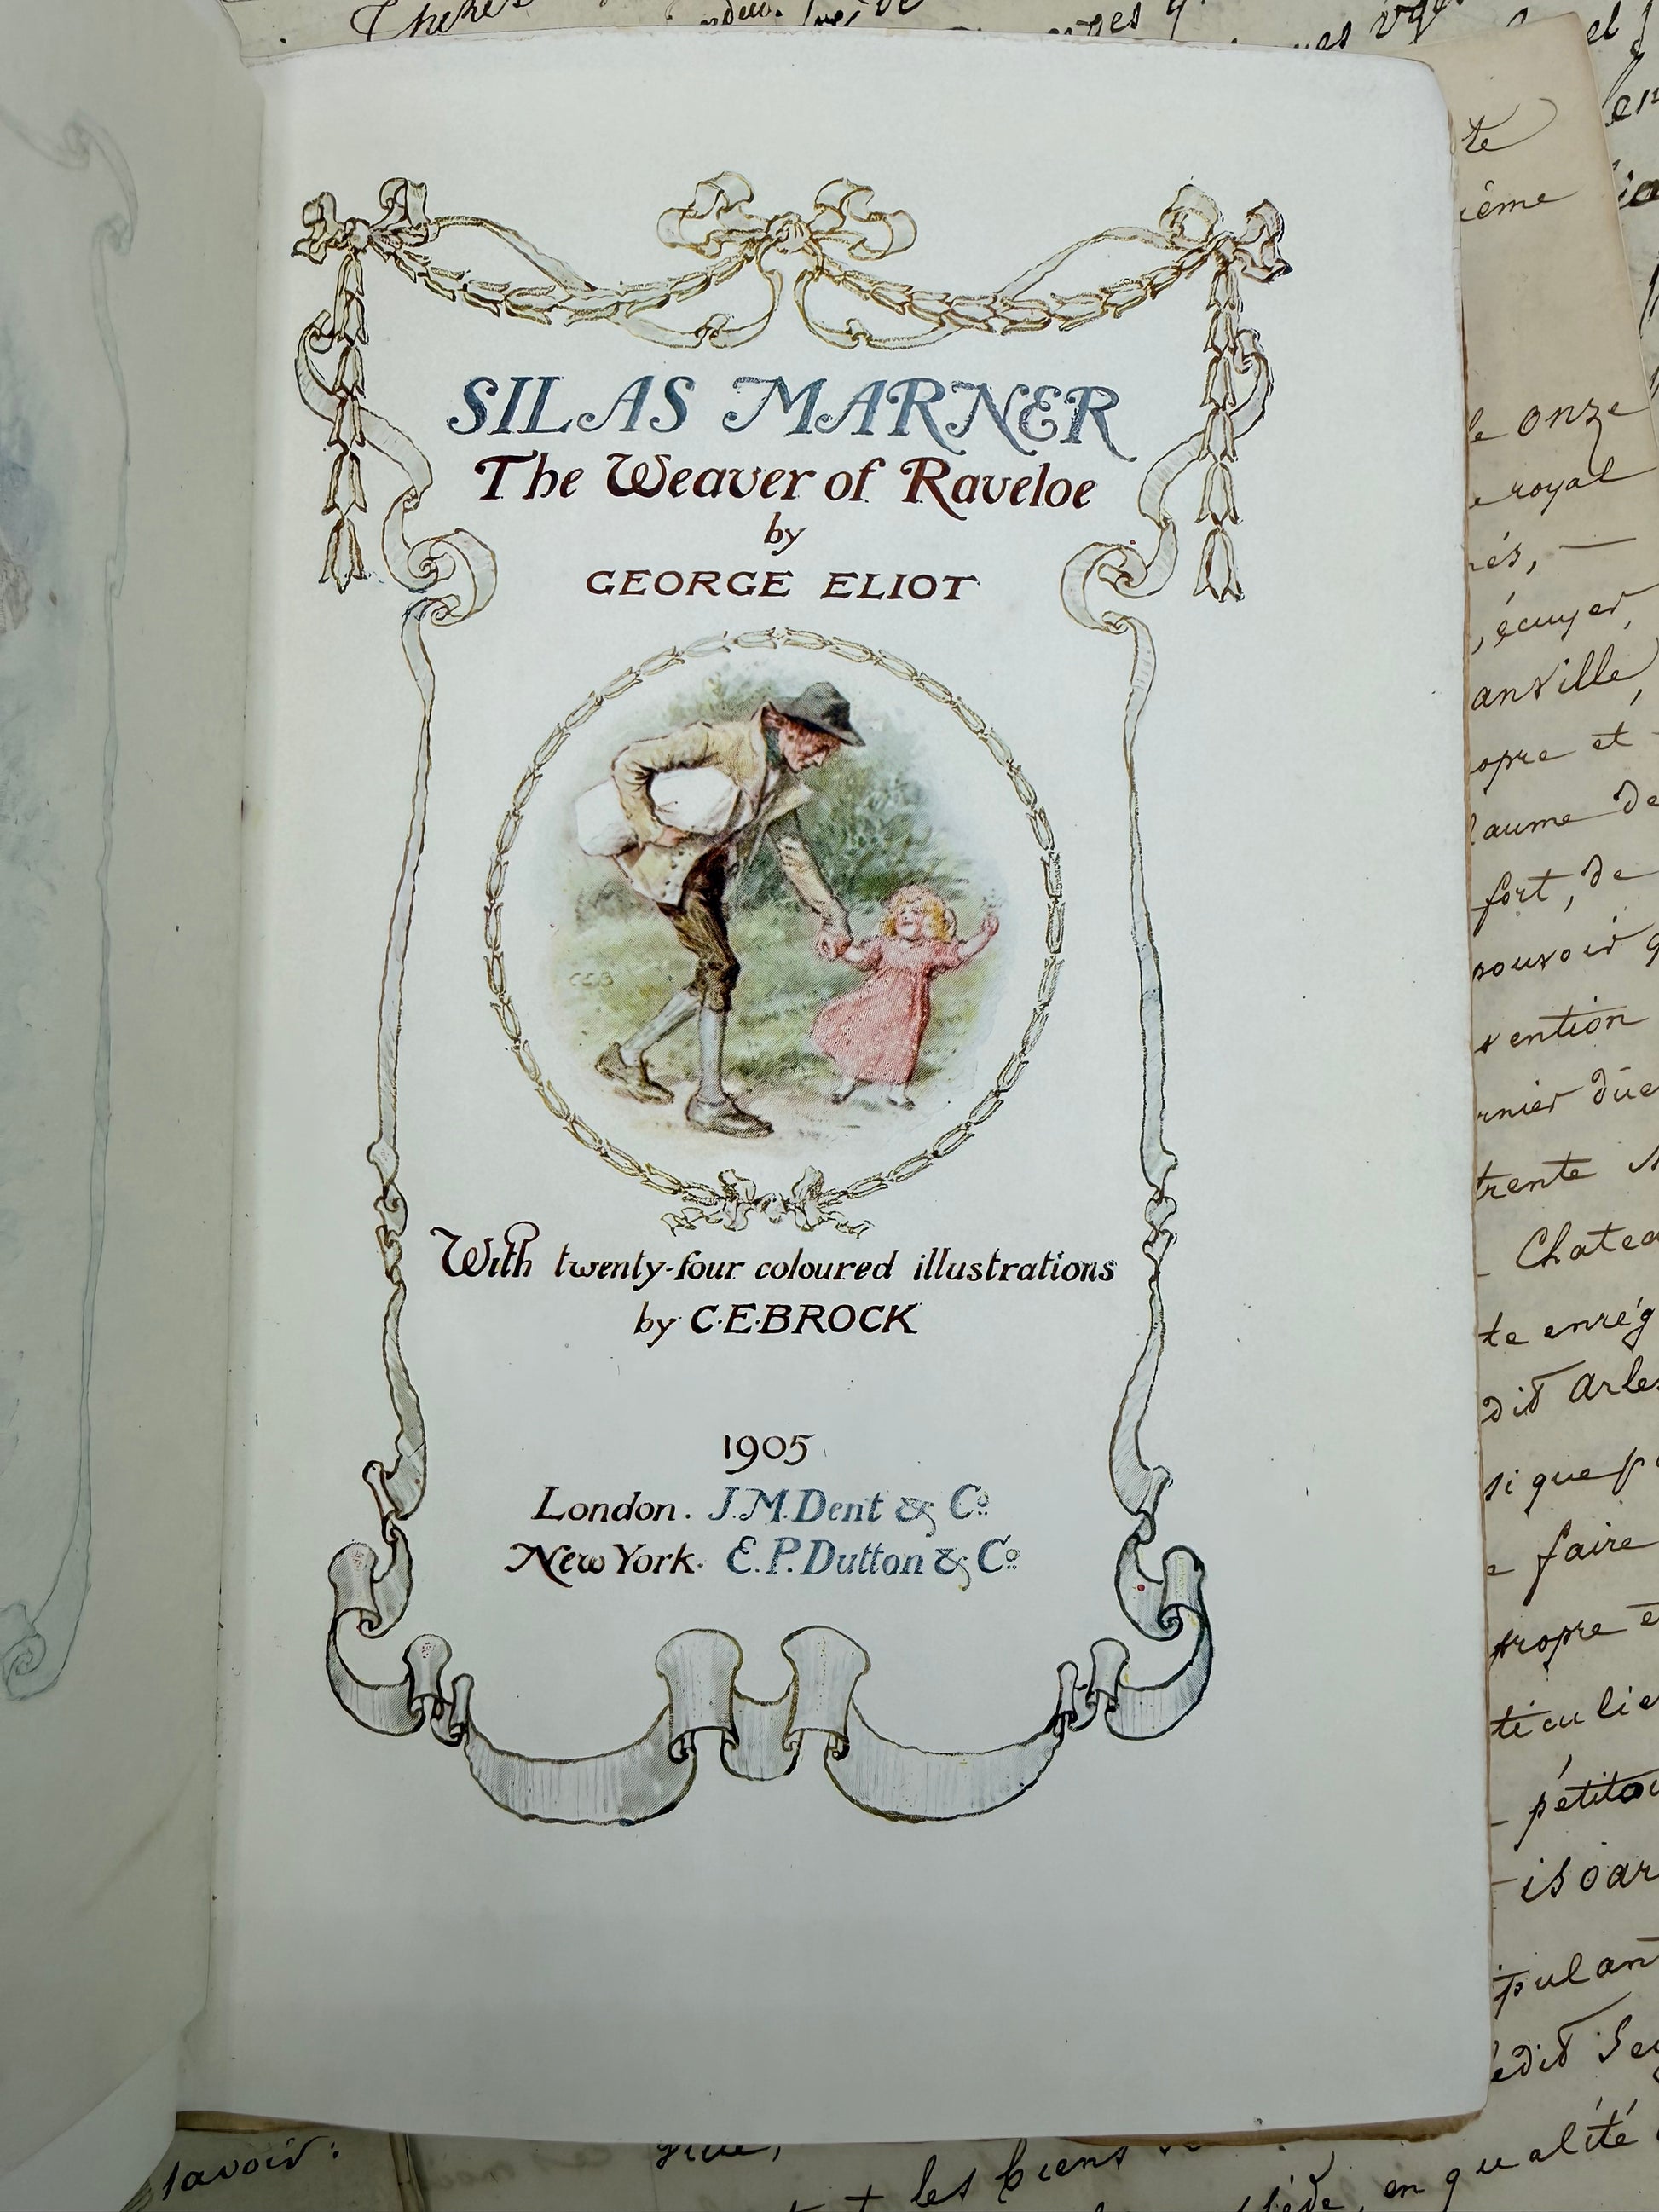 SILAS MARNER
The Weaver of Raveloe
by
GEORGE ELIOT
CEB
With twenty-four coloured illustrations
by C.E.BROCK
1905
London. J.M.Dent & Co.
New York. E.P.Dutton & Co.
te
ième
le onze
e royal
rés, —
, écuyer,
anville,
opre et
laume de
fort, de
pouvoir
vention
rnier düe
trente
Chatea
te enrég
dit Arles
si que p
e faire
propre e
ticulie
pulant
édit Sei
savoir :
+ les biens
, en qualité